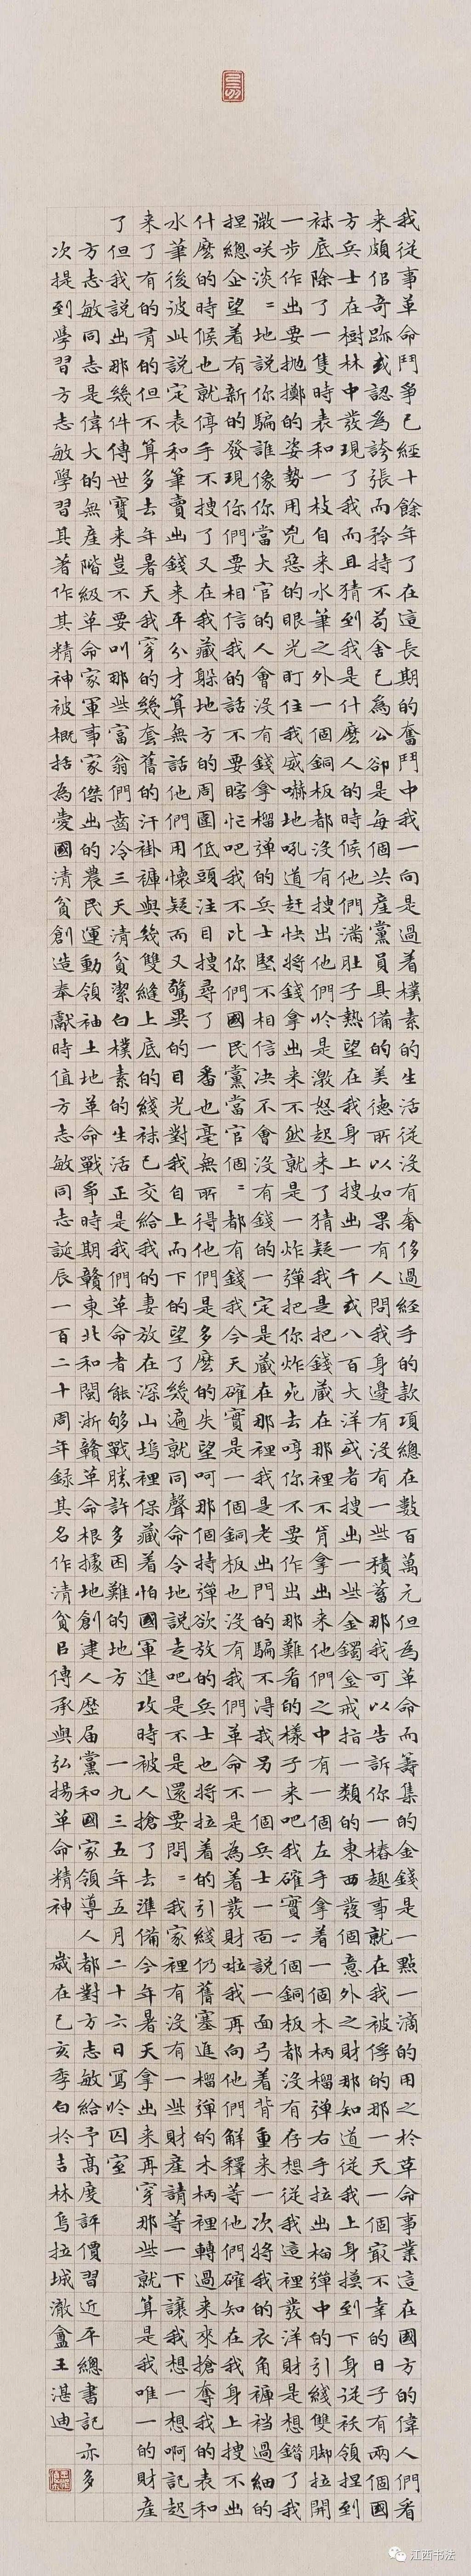 我從事革命鬥爭已經十餘年了在這長期的奮鬥中我一向是過着樸素的生活從沒有奢侈過經手的款項總在數百萬元但為革命而籌集的金錢是一點一滴的用之於革命事業這在國方的偉人們看
來頗佀奇跡或認為誇張而矜持不苟舍己為公卻是每個共產黨員具備的美德所以如果有人問我身邊有沒有一些積蓄那我可以告訴你一樁趣事就在我被俘的那一天一個最不幸的日子有兩個國
方兵士在樹林中發現了我而且猜到我是什麼人的時候他們滿肚子熱望在我身上搜出一千或八百大洋或者搜出一些金鐲金戒指一類的東西發個意外之財那知道從我上身摸到下身從袄領捏到
袜底除了一隻時表和一枝自来水筆之外一個銅板都沒有搜出他們於是激怒起来了猜疑我是把錢藏在那裡不肯拿出来他們之中有一個左手拿着一個木柄榴彈右手拉出榴彈中的引綫雙脚拉開
一步作出要拋擲的姿勢用兇惡的眼光盯住我威嚇地吼道赶快將錢拿出来不然就是一炸彈把你炸死去哼你不要作出那難看的樣子来吧我確實一個銅板都沒有存想從我這裡發洋財是想錯了我
微咲淡〻地說你騙誰像你當大官的人會沒有錢拿榴彈的兵士堅不相信决不會沒有錢的一定是藏在那裡我是老出門的騙不得我另一個兵士一面說一面弓着背重来一次將我的衣角褲襠過細的
捏總企望着有新的發現你們要相信我的話不要瞎忙吧我不比你們國民黨當官個〻都有錢我今天確實是一個銅板也沒有我們革命不是為着發財啦我再向他們解釋等他們確知在我身上搜不出
什麼的時候也就停手不搜了又在我藏躲地方的周圍低頭注目搜尋了一番也毫無所得他們是多麼的失望呵那個持彈欲放的兵士也將拉着的引綫仍舊塞進榴彈的木柄裡轉過来來搶奪我的表和
水筆後彼此說定表和筆賣出錢来平分才算無話他們用懷疑而又驚異的目光對我自上而下的望了幾遍就同聲命令地說走吧是不是還要問〻我家裡有沒有一些財產請等一下讓我想一想啊記起
来了有的有的但不算多去年暑天我穿的幾套舊的汗褂褲與幾雙縫上底的綫袜已交給我的妻放在深山塢裡保藏着怕國軍進攻時被人搶了去準備今年暑天拿出来再穿那些就算是我唯一的財產
了但我說出那幾件傳世寶来豈不要叫那些富翁們齒冷三天清貧潔白樸素的生活正是我們革命者能够戰勝許多困難的地方 一九三五年五月二十六日寫於囚室
方志敏同志是偉大的無產階級革命家軍事家傑出的農民運動領袖土地革命戰爭時期贛東北和閩浙贛革命根據地創建人歷届黨和國家領導人都對方志敏給予高度評價習近平總書記亦多
次提到學習方志敏學習其著作其精神被概括為愛國清貧創造奉獻時值方志敏同志誕辰一百二十周年錄其名作清貧㠯傳承與弘揚革命精神 歲在己亥季白於吉林烏拉城澈盦王湛迪
江西书法